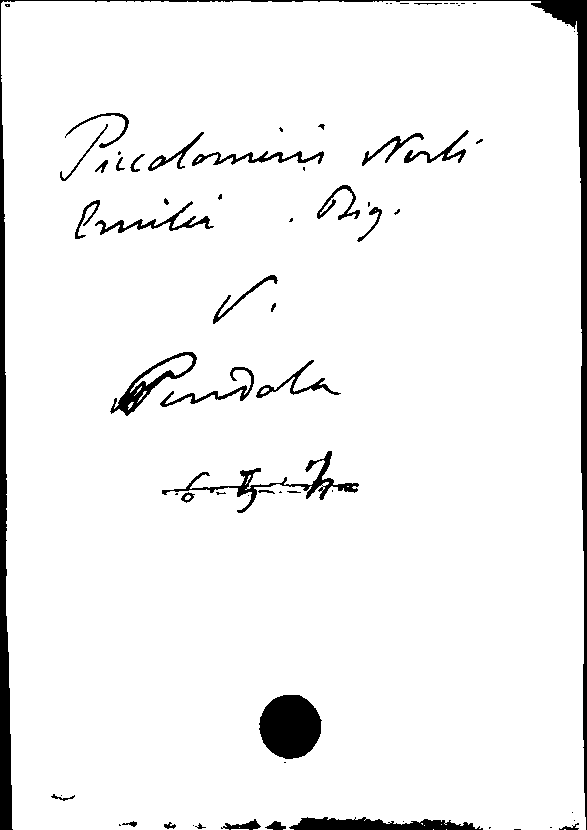 Piccolomini Nerli
Emilia . Big.
V.
Pendola